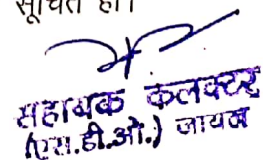 सूचित हो।
सहायक कलक्टर
(एस.डी.ओ.) जायल